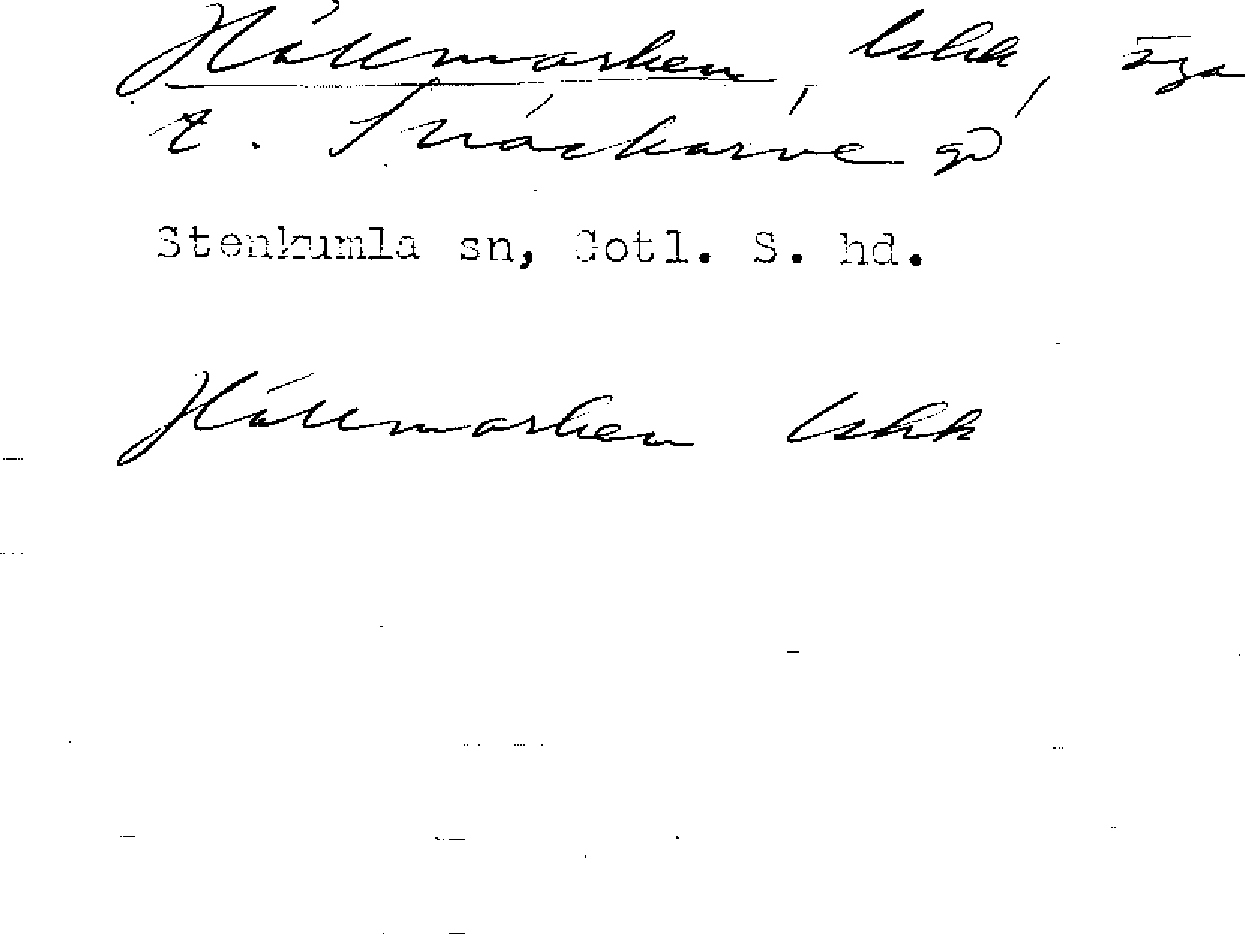 Hällmarken, lskk, äga
t. Snäckarve gd
Stenkumla sn, Gotl. S. hd.
Hällmarken lskk